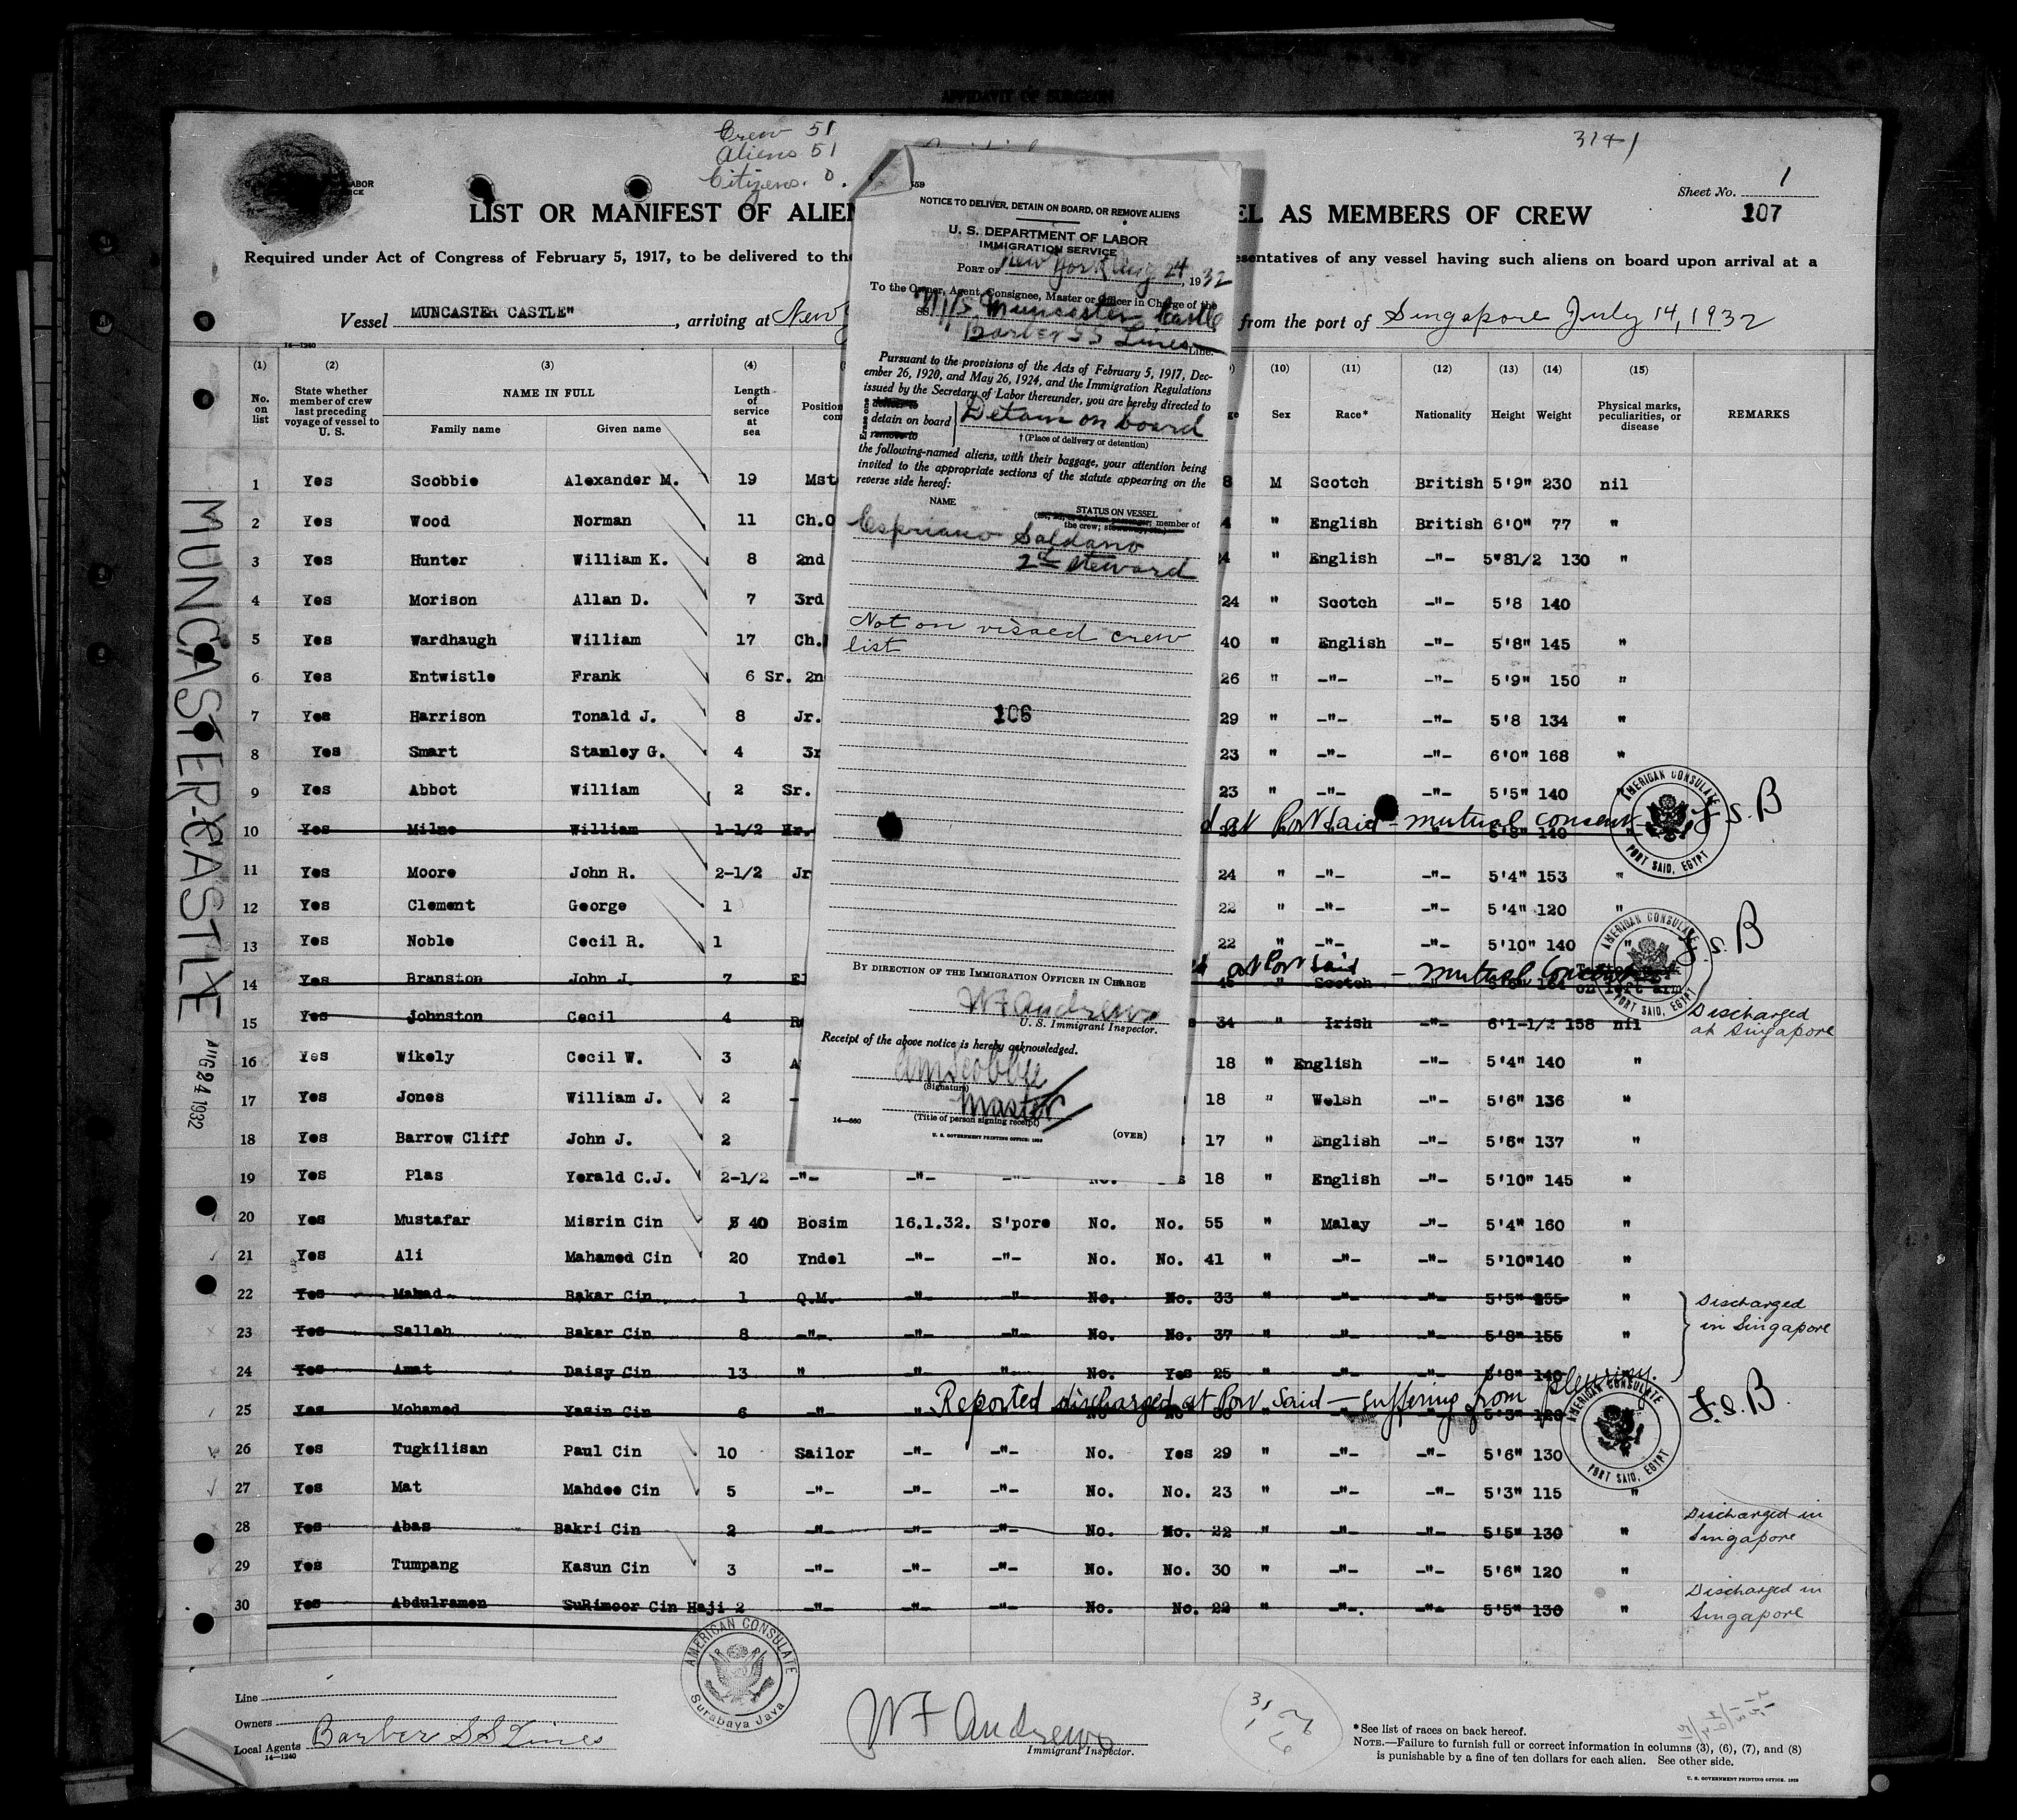 AFFIDAVIT OF SURGEON
Crew 51
Aliens 51
Citizens. 0.
3141
Sheet No. 1
107
LIST OR MANIFEST OF ALIEN
EL AS MEMBERS OF CREW
Required under Act of Congress of February 5, 1917, to be delivered to the
esentatives of any vessel having such aliens on board upon arrival at a
Vessel MUNCASTER CASTLE", arriving at New
from the port of Singapore July 14, 1932
14—1240
(1) (2) (3) (4) (10) (11) (12) (13) (14) (15)
No. on list
State whether member of crew last preceding voyage of vessel to U. S.
NAME IN FULL
Family name Given name
Length of service at sea
Position
Sex Race* Nationality Height Weight
Physical marks, peculiarities, or disease
REMARKS
1 Yes Scobbie Alexander M. 19 Mst 8 M Scotch British 5'9" 230 nil
2 Yes Wood Norman 11 Ch.O 4 " English British 6'0" 77 "
3 Yes Hunter William K. 8 2nd 4 " English -"- 5"81/2 130 "
4 Yes Morison Allan D. 7 3rd 24 " Scotch -"- 5'8 140
5 Yes Wardhaugh William 17 Ch. 40 " English -"- 5'8" 145 "
6 Yes Entwistle Frank 6 Sr. 2n 26 " -"- -"- 5'9" 150 "
7 Yes Harrison Tonald J. 8 Jr. 29 " -"- -"- 5'8 134 "
8 Yes Smart Stanley G. 4 3r 23 " -"- -"- 6'0" 168 "
9 Yes Abbot William 2 Sr. 23 " -"- -"- 5'5" 140 "
10 Yes Milne William 1-1/2 d at Port Said - mutual consent 140
AMERICAN CONSULATE PORT SAID, EGYPT
J.S.B
11 Yes Moore John R. 2-1/2 Jr 24 " -"- -"- 5'4" 153 "
12 Yes Clement George 1 22 " -"- -"- 5'4" 120 "
13 Yes Noble Cecil R. 1 22 " -"- -"- 5'10" 140 "
AMERICAN CONSULATE PORT SAID, EGYPT
J.S.B
14 Yes Branston John J. 7 El at Port Said - mutual consent 45 " Scotch on left arm
15 Yes Johnston Cecil 4 R 34 " Irish -"- 6'1-1/2 158 nil Discharged at Singapore
16 Yes Wikely Cecil W. 3 A 18 " English -"- 5'4" 140 "
17 Yes Jones William J. 2 - 18 " Welsh -"- 5'6" 136 "
18 Yes Barrow Cliff John J. 2 17 " English -"- 5'6" 137 "
19 Yes Plas Yerald C.J. 2-1/2 -"- -"- -"- No. 18 " English -"- 5'10" 145 "
20 Yes Mustafar Misrin Cin 40 Bosim 16.1.32. S'pore No. No. 55 " Malay -"- 5'4" 160 "
21 Yes Ali Mahamed Cin 20 Yndel -"- -"- No. No. 41 " -"- -"- 5'10" 140 "
22 Yes Mahad Bakar Cin 1 Q.M. -"- -"- No. No. 33 " -"- -"- 5'5" 155 "
23 Yes Salleh Bakar Cin 8 -"- -"- -"- No. No. 37 " -"- -"- 5'8" 155 "
Discharged in Singapore
24 Yes Amat Daisy Cin 13 " " " No. Yes 25 " -"- -"- 5'8" 140
25 Yes Mohamed Yasin Cin 6 -"- Reported discharged at Port Said - suffering from pleurisy.
AMERICAN CONSULATE PORT SAID, EGYPT
J.S.B.
26 Yes Tugkilisan Paul Cin 10 Sailor -"- -"- No. Yes 29 " -"- -"- 5'6" 130
27 Yes Mat Mahdee Cin 5 -"- -"- -"- No. No. 23 " -"- -"- 5'3" 115 "
28 Yes Abas Bakri Cin 2 -"- -"- -"- No. No. 22 " -"- -"- 5'5" 130 " Discharged in Singapore
29 Yes Tumpang Kasun Cin 3 -"- -"- -"- No. No. 30 " -"- -"- 5'6" 120 "
30 Yes Abdulramen SuRimoor Cin Haji 2 -"- -"- -"- No. No. 22 " -"- -"- 5'5" 130 " Discharged in Singapore
AMERICAN CONSULATE Surabaya Java
Line
Owners
Local Agents Barber SS Lines
14—1240
W F Andrews
Immigrant Inspector.
*See list of races on back hereof.
NOTE.—Failure to furnish full or correct information in columns (3), (6), (7), and (8)
is punishable by a fine of ten dollars for each alien. See other side.
U. S. GOVERNMENT PRINTING OFFICE. 1929
MUNCASTER-CASTLE
AUG 24 1932
NOTICE TO DELIVER, DETAIN ON BOARD, OR REMOVE ALIENS
U. S. DEPARTMENT OF LABOR
IMMIGRATION SERVICE
PORT OF New York Aug 24, 1932
To the Owner, Agent, Consignee, Master or Officer in Charge of the
SS M/S Muncaster Castle
Barber SS Lines Line.
Pursuant to the provisions of the Acts of February 5, 1917, Dec-
ember 26, 1920, and May 26, 1924, and the Immigration Regulations
issued by the Secretary of Labor thereunder, you are hereby directed to
Erase one
deliver to
detain on board
remove to
Detain on board
†(Place of delivery or detention)
the following-named aliens, with their baggage, your attention being
invited to the appropriate sections of the statute appearing on the
reverse side hereof:
NAME
STATUS ON VESSEL
member of
the crew;
Cspriano Saldano
2d steward
Not on visaed crew
list
106
BY DIRECTION OF THE IMMIGRATION OFFICER IN CHARGE
W F Andrews
U. S. Immigrant Inspector.
Receipt of the above notice is hereby acknowledged.
AMScobbie
(Signature)
Master
(Title of person signing receipt)
14—660
U. S. GOVERNMENT PRINTING OFFICE: 1929
(OVER)